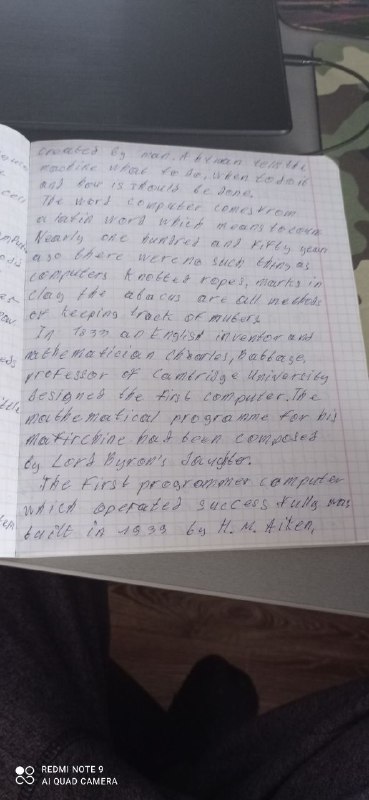 created by man. A human tells the
machine what to do, when to do it
and how is should be done.
The word computer comes from
a latin word which means to coun
Nearly one hundred and fifty years
ago there were no such thing as
computers knotted ropes, marks in
clay the abacus are all methods
of keeping track of
In 1833 an English inventor and
mathematician Charles, Babbage,
professor of Cambridge University
designed the first computer. The
mathematical programme for his
had been composed
by Lord Byron's daughter.
The first programmer computer
which operated success fully was
built in 1939 by H. M. Aiken,
REDMI NOTE 9
AI QUAD CAMERA